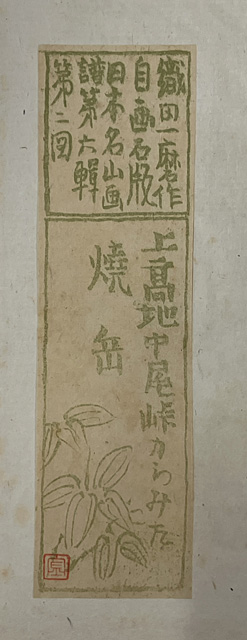 織田一磨作
自画石版
日本名山画
譜第六輯
第二図
上高地中尾峠からみた
焼岳